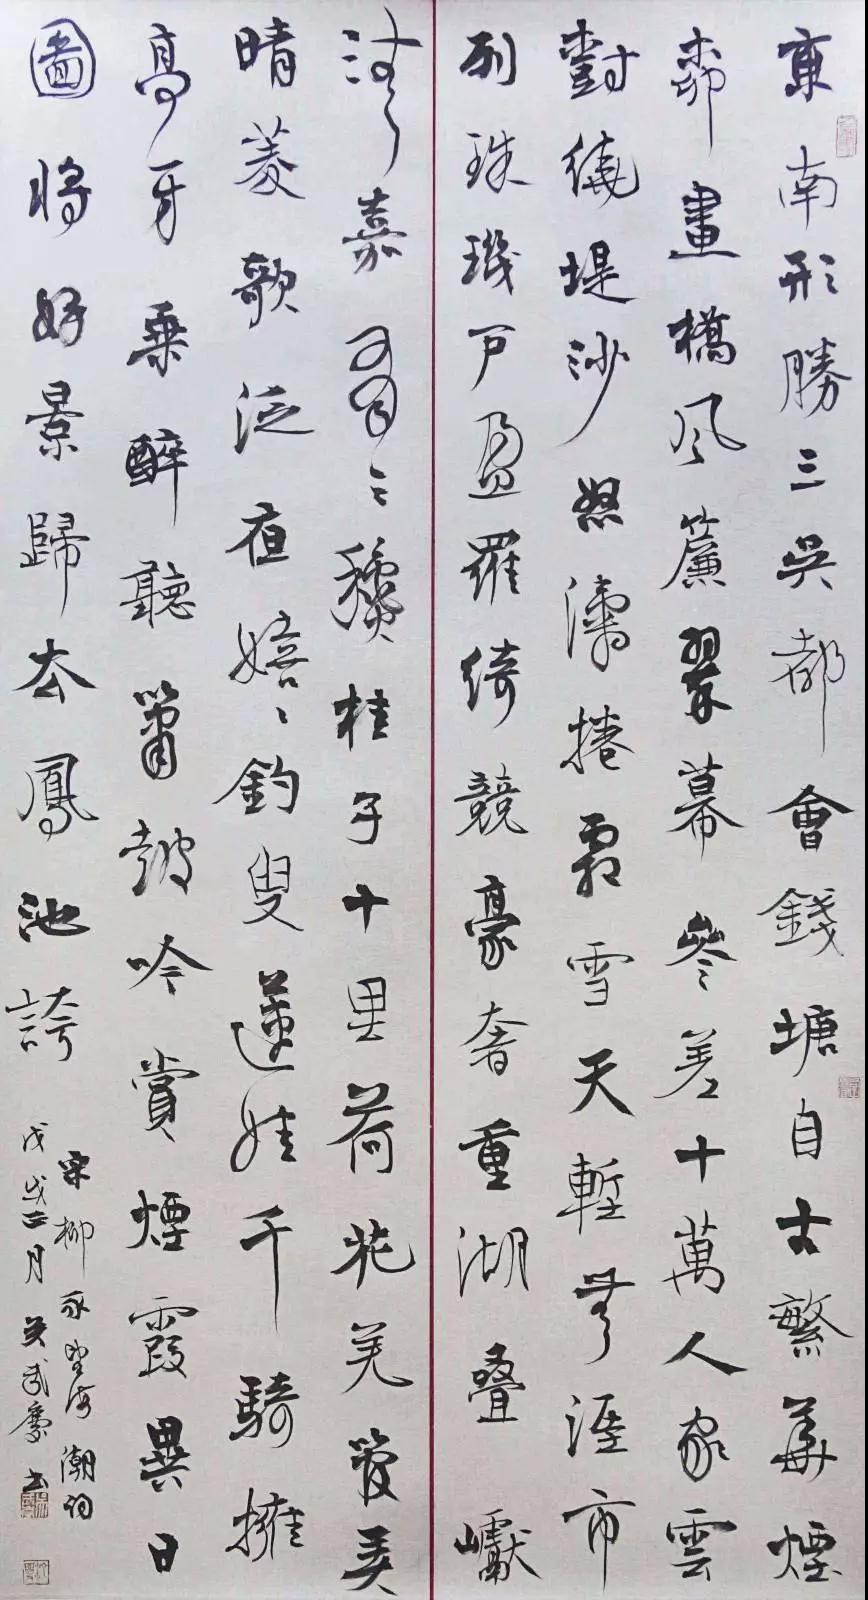 東南形勝三吳都會錢塘自古繁華煙
柳畫橋風簾翠幕參差十萬人家雲
樹繞堤沙怒濤捲霜雪天塹無涯市
列珠璣戶盈羅綺競豪奢重湖疊巘
清嘉有三秋桂子十里荷花羌管弄
晴菱歌泛夜嬉々釣叟蓮娃千騎擁
高牙乘醉聽簫鼓吟賞煙霞異日
圖將好景歸去鳳池誇
宋柳永望海潮詞
戊戌正月吴武書